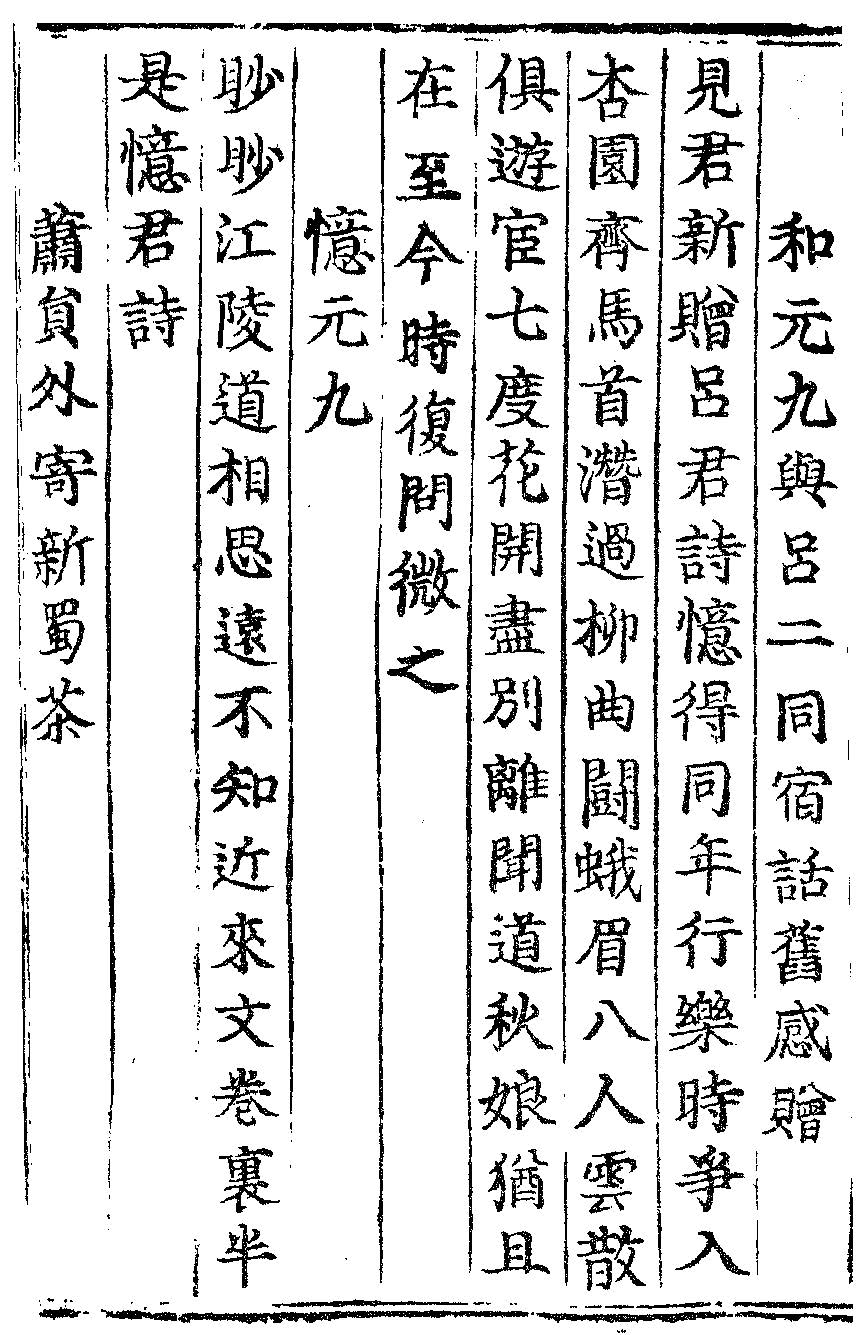 和元九與呂二同宿話舊感贈
見君新贈呂君詩憶得同年行樂時爭入
杏園齊馬首潛過柳曲鬪蛾眉八人雲散
俱遊宦七度花開盡別離聞道秋娘猶且
在至今時復問微之
憶元九
眇眇江陵道相思遠不知近來文卷裏半
是憶君詩
蕭員外寄新蜀茶